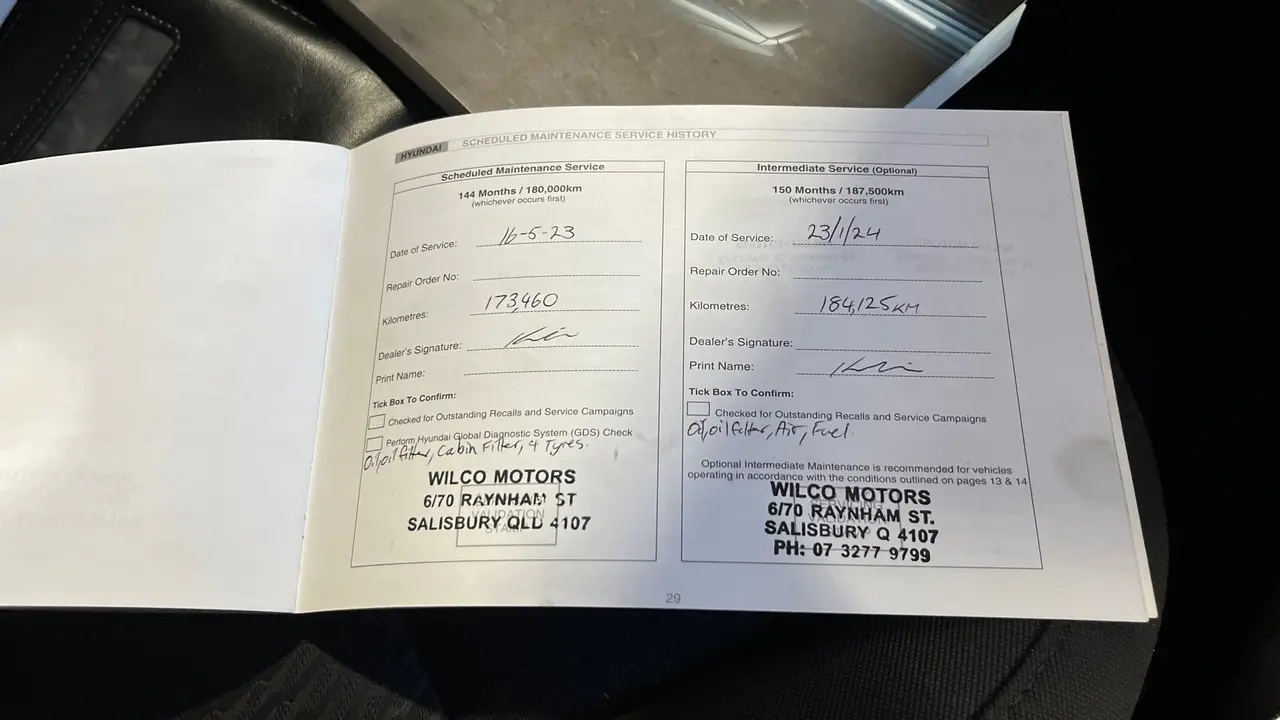 HYUNDAI SCHEDULED MAINTENANCE SERVICE HISTORY
Scheduled Maintenance Service
144 Months / 180,000km
(whichever occurs first)
Date of Service: 16-5-23
Repair Order No:
Kilometres: 173,460
Dealer's Signature:
Print Name:
Tick Box To Confirm:
Checked for Outstanding Recalls and Service Campaigns
Perform Hyundai Global Diagnostic System (GDS) Check
Oil, oil filter, Cabin Filter, 4 Tyres.
WILCO MOTORS
6/70 RAYNHAM ST
SALISBURY QLD 4107
VALIDATION
STAMP
Intermediate Service (Optional)
150 Months / 187,500km
(whichever occurs first)
Date of Service: 23/1/24
Repair Order No:
Kilometres: 184,125KM
Dealer's Signature:
Print Name:
Tick Box To Confirm:
Checked for Outstanding Recalls and Service Campaigns
Oil, oil filter, Air, Fuel.
Optional Intermediate Maintenance is recommended for vehicles
operating in accordance with the conditions outlined on pages 13 & 14
WILCO MOTORS
SERVICING
6/70 RAYNHAM ST.
VALIDATION
SALISBURY Q 4107
PH: 07 3277 9799
29